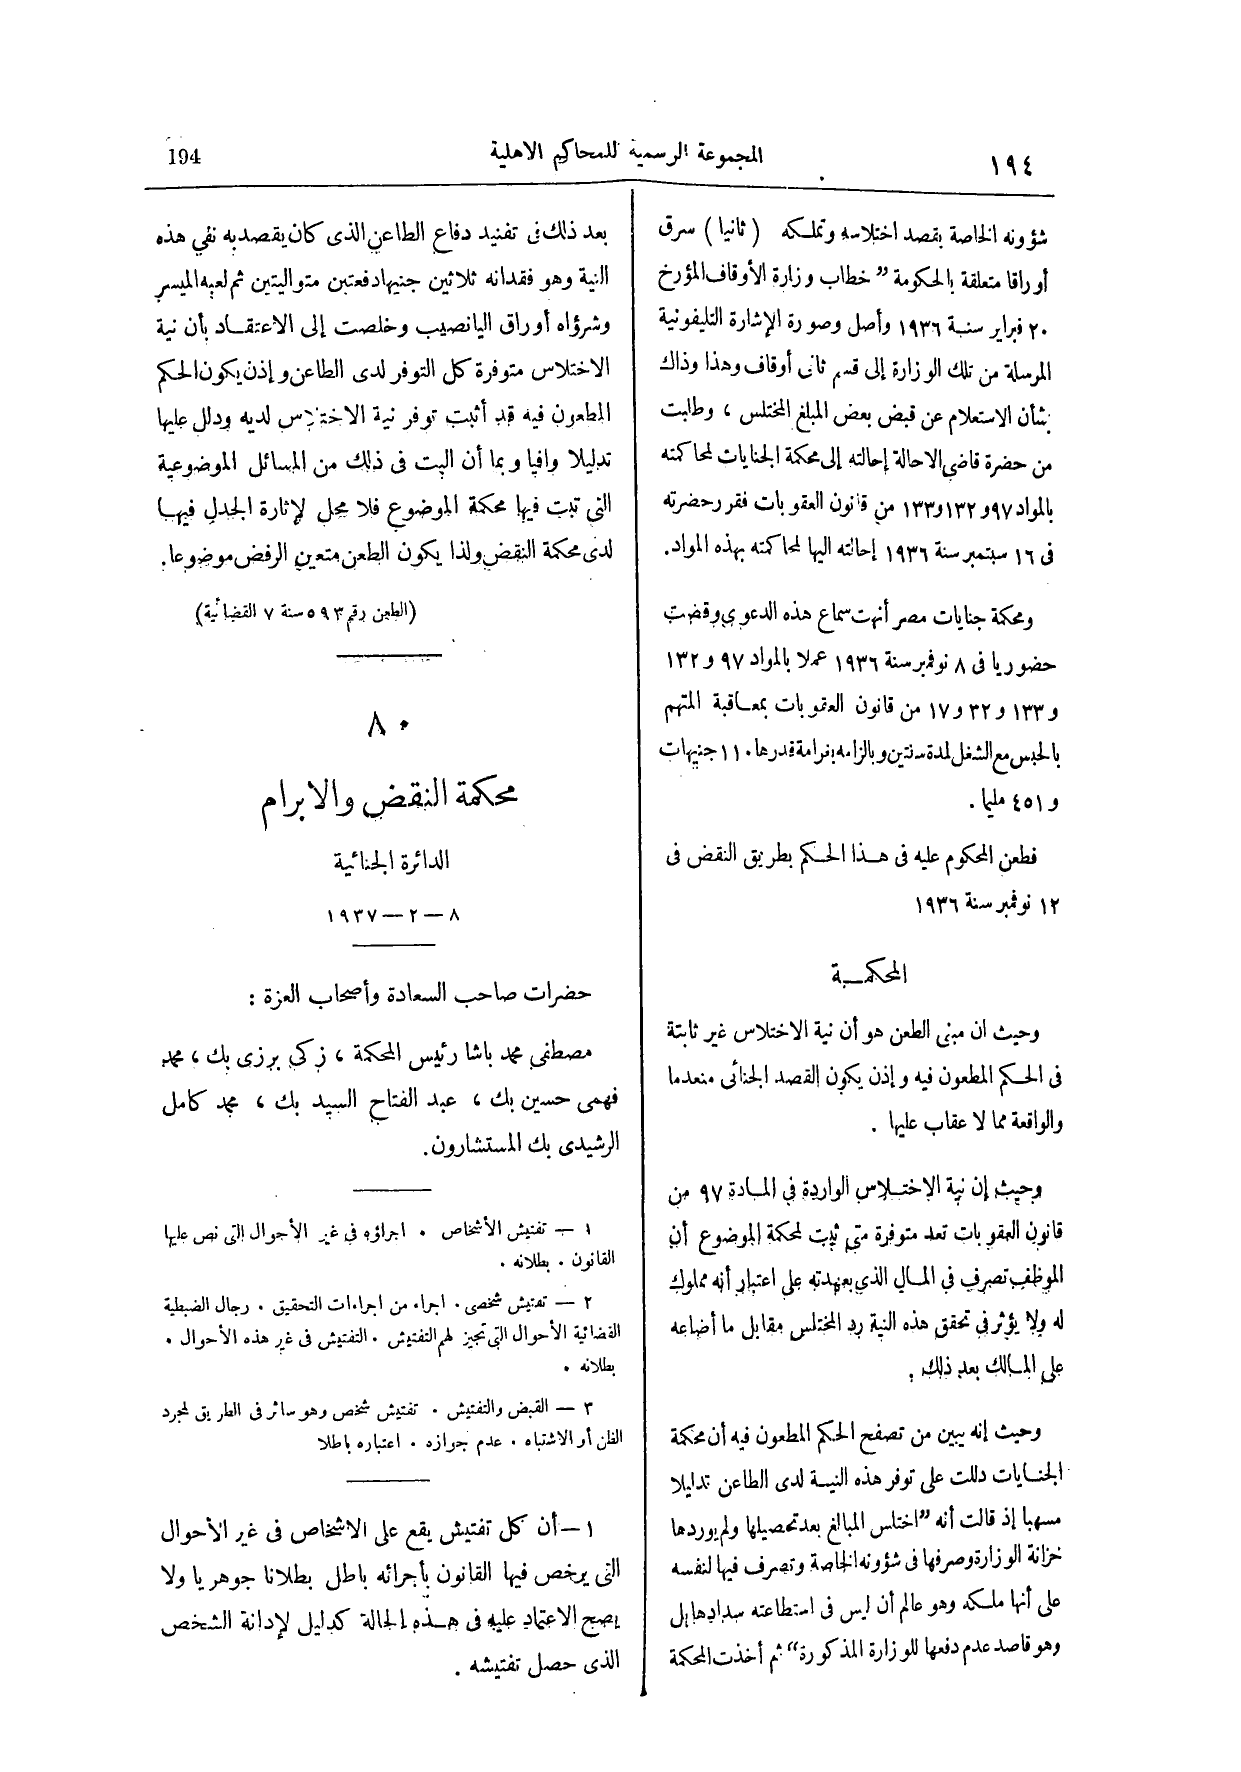 ١٩٤
المجموعة الرسمية للمحاكم الاهلية
194
شؤونه الخاصة بقصد اختلاسه وتملكه (ثانيا) سرق
أوراقا متعلقة بالحكومة "خطاب وزارة الأوقاف المؤرخ
٢٠ فبراير سنة ١٩٣٦ وأصل وصورة الإشارة التليفونية
المرسلة من تلك الوزارة إلى قسم ثانى أوقاف وهذا وذاك
بشأن الاستعلام عن قبض بعض المبلغ المختلس ، وطلبت
من حضرة قاضى الاحالة إحالته إلى محكمة الجنايات لمحاكمته
بالمواد ٩٧ و١٣٢ و١٣٣ من قانون العقوبات فقرر حضرته
فى ١٦ سبتمبر سنة ١٩٣٦ إحالته اليها لمحاكمته بهذه المواد.
ومحكمة جنايات مصر أنهت سماع هذه الدعوى وقضت
حضوريا فى ٨ نوفمبر سنة ١٩٣٦ عملا بالمواد ٩٧ و١٣٢
و١٣٣ و٣٢ و١٧ من قانون العقوبات بمعاقبة المتهم
بالحبس مع الشغل لمدة سنتين وبالزامه بغرامة قدرها ١١٠ جنيهات
و٤٥١ مليما .
فطعن المحكوم عليه فى هذا الحكم بطريق النقض فى
١٢ نوفمبر سنة ١٩٣٦
المحكمة
وحيث ان مبنى الطعن هو أن نية الاختلاس غير ثابتة
فى الحكم المطعون فيه وإذن يكون القصد الجنائى منعدما
والواقعة مما لا عقاب عليها .
وحيث إن نية الاختلاس الواردة فى المادة ٩٧ من
قانون العقوبات تعد متوفرة متى ثبت لمحكمة الموضوع أن
الموظف تصرف فى المال الذى بعهدته على اعتبار أنه مملوك
له ولا يؤثر فى تحقق هذه النية رد المختلس مقابل ما أضاعه
على المالك بعد ذلك .
وحيث إنه يبين من تصفح الحكم المطعون فيه أن محكمة
الجنايات دللت على توفر هذه النية لدى الطاعن تدليلا
مسهبا إذ قالت أنه "اختلس المبالغ بعد تحصيلها ولم يوردها
خزانة الوزارة وصرفها فى شؤونه الخاصة وتصرف فيها لنفسه
على أنها ملكه وهو عالم أن ليس فى استطاعته سدادها بل
وهو قاصد عدم دفعها للوزارة المذكورة" ثم أخذت المحكمة
بعد ذلك فى تفنيد دفاع الطاعن الذى كان يقصد به نفي هذه
النية وهو فقدانه ثلاثين جنيها دفعتين متواليتين ثم لعبه الميسر
وشرؤاه أوراق اليانصيب وخلصت إلى الاعتقاد بأن نية
الاختلاس متوفرة كل التوفر لدى الطاعن وإذن يكون الحكم
المطعون فيه قد أثبت توفر نية الاختلاس لديه ودلل عليها
تدليلا وافيا وبما أن البت فى ذلك من المسائل الموضوعية
التي تبت فيها محكمة الموضوع فلا محل لإثارة الجدل فيها
لدى محكمة النقض ولذا يكون الطعن متعين الرفض موضوعا.
(الطعن رقم ٥٩٣ سنة ٧ القضائية)
٨٠
محكمة النقض والابرام
الدائرة الجنائية
٨ — ٢ — ١٩٣٧
حضرات صاحب السعادة وأصحاب العزة :
مصطفى محمد باشا رئيس المحكمة ، زكى برزى بك ، محمد
فهمى حسين بك ، عبد الفتاح السيد بك ، محمد كامل
الرشيدى بك المستشارون.
١ — تفتيش الأشخاص . اجراؤه فى غير الأحوال التى نص عليها
القانون . بطلانه .
٢ — تفتيش شخصى . اجراء من اجراءات التحقيق . رجال الضبطية
القضائية الأحوال التى تجيز لهم التفتيش . التفتيش فى غير هذه الأحوال .
بطلانه .
٣ — القبض والتفتيش . تفتيش شخص وهو سائر فى الطريق لمجرد
الظن أو الاشتباه . عدم جوازه . اعتباره باطلا
١ — أن كل تفتيش يقع على الاشخاص فى غير الأحوال
التى يرخص فيها القانون بأجرائه باطل بطلانا جوهريا ولا
يصح الاعتماد عليه فى هذه الحالة كدليل لإدانة الشخص
الذى حصل تفتيشه .